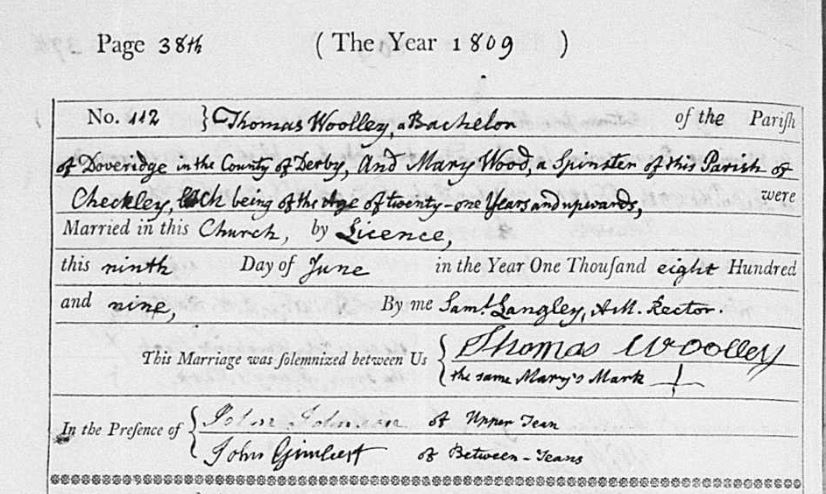 Page 38th (The Year 1809)
No. 112 } Thomas Woolley, a Bachelor of the Pariſh
of Doveridge in the County of Derby, And Mary Wood, a Spinster of this Parish of
Checkley, Each being of the Age of twenty-one Years and upwards, were
Married in this Church, by Licence,
this ninth Day of June in the Year One Thouſand eight Hundred
and nine, By me Sam.l Langley, A.M. Rector.
This Marriage was ſolemnized between Us { Thomas Woolley
the same Mary's Mark
In the Preſence of { John Johnson of Upper Tean
John Gimbert of Between-Teans